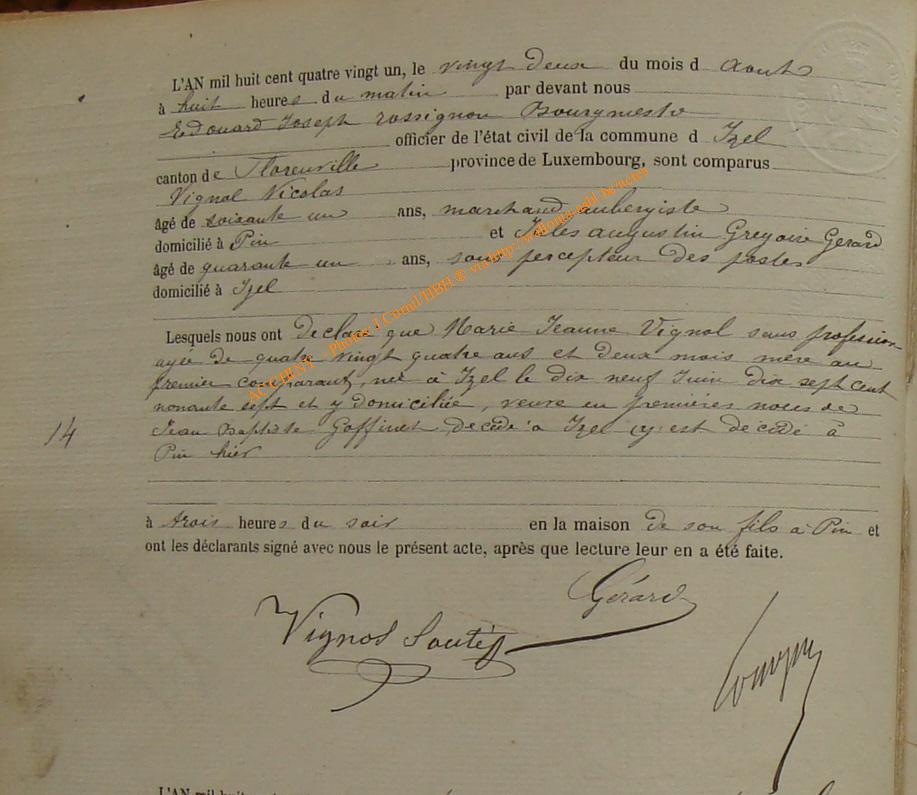 L'AN mil huit cent quatre vingt un, le vingt deux du mois d aout
à huit heures du matin par devant nous
Edouard Joseph rossignon Bourgmestre
officier de l'état civil de la commune d Izel
canton de Florenville province de Luxembourg, sont comparus
Vignol Nicolas
âgé de soixante un ans, marchand aubergiste
domicilié à Pin et Jules augustin Gregoire Gerard
âgé de quarante un ans, sous percepteur des postes
domicilié à Izel
Lesquels nous ont declaré que Marie Jeanne Vignol sans profession
agée de quatre vingt quatre ans et deux mois mère au
premier comparant, née à Izel le dix neuf Juin dix sept cent
nonante sept et y domiciliée, veuve en premières noces de
14
Jean Baptiste Goffinet décédé à Izel y est décédé à
Pin hier
à trois heures du soir en la maison de son fils à Pin et
ont les déclarants signé avec nous le présent acte, après que lecture leur en a été faite.
Gérard
Vignol
L'AN mil huit